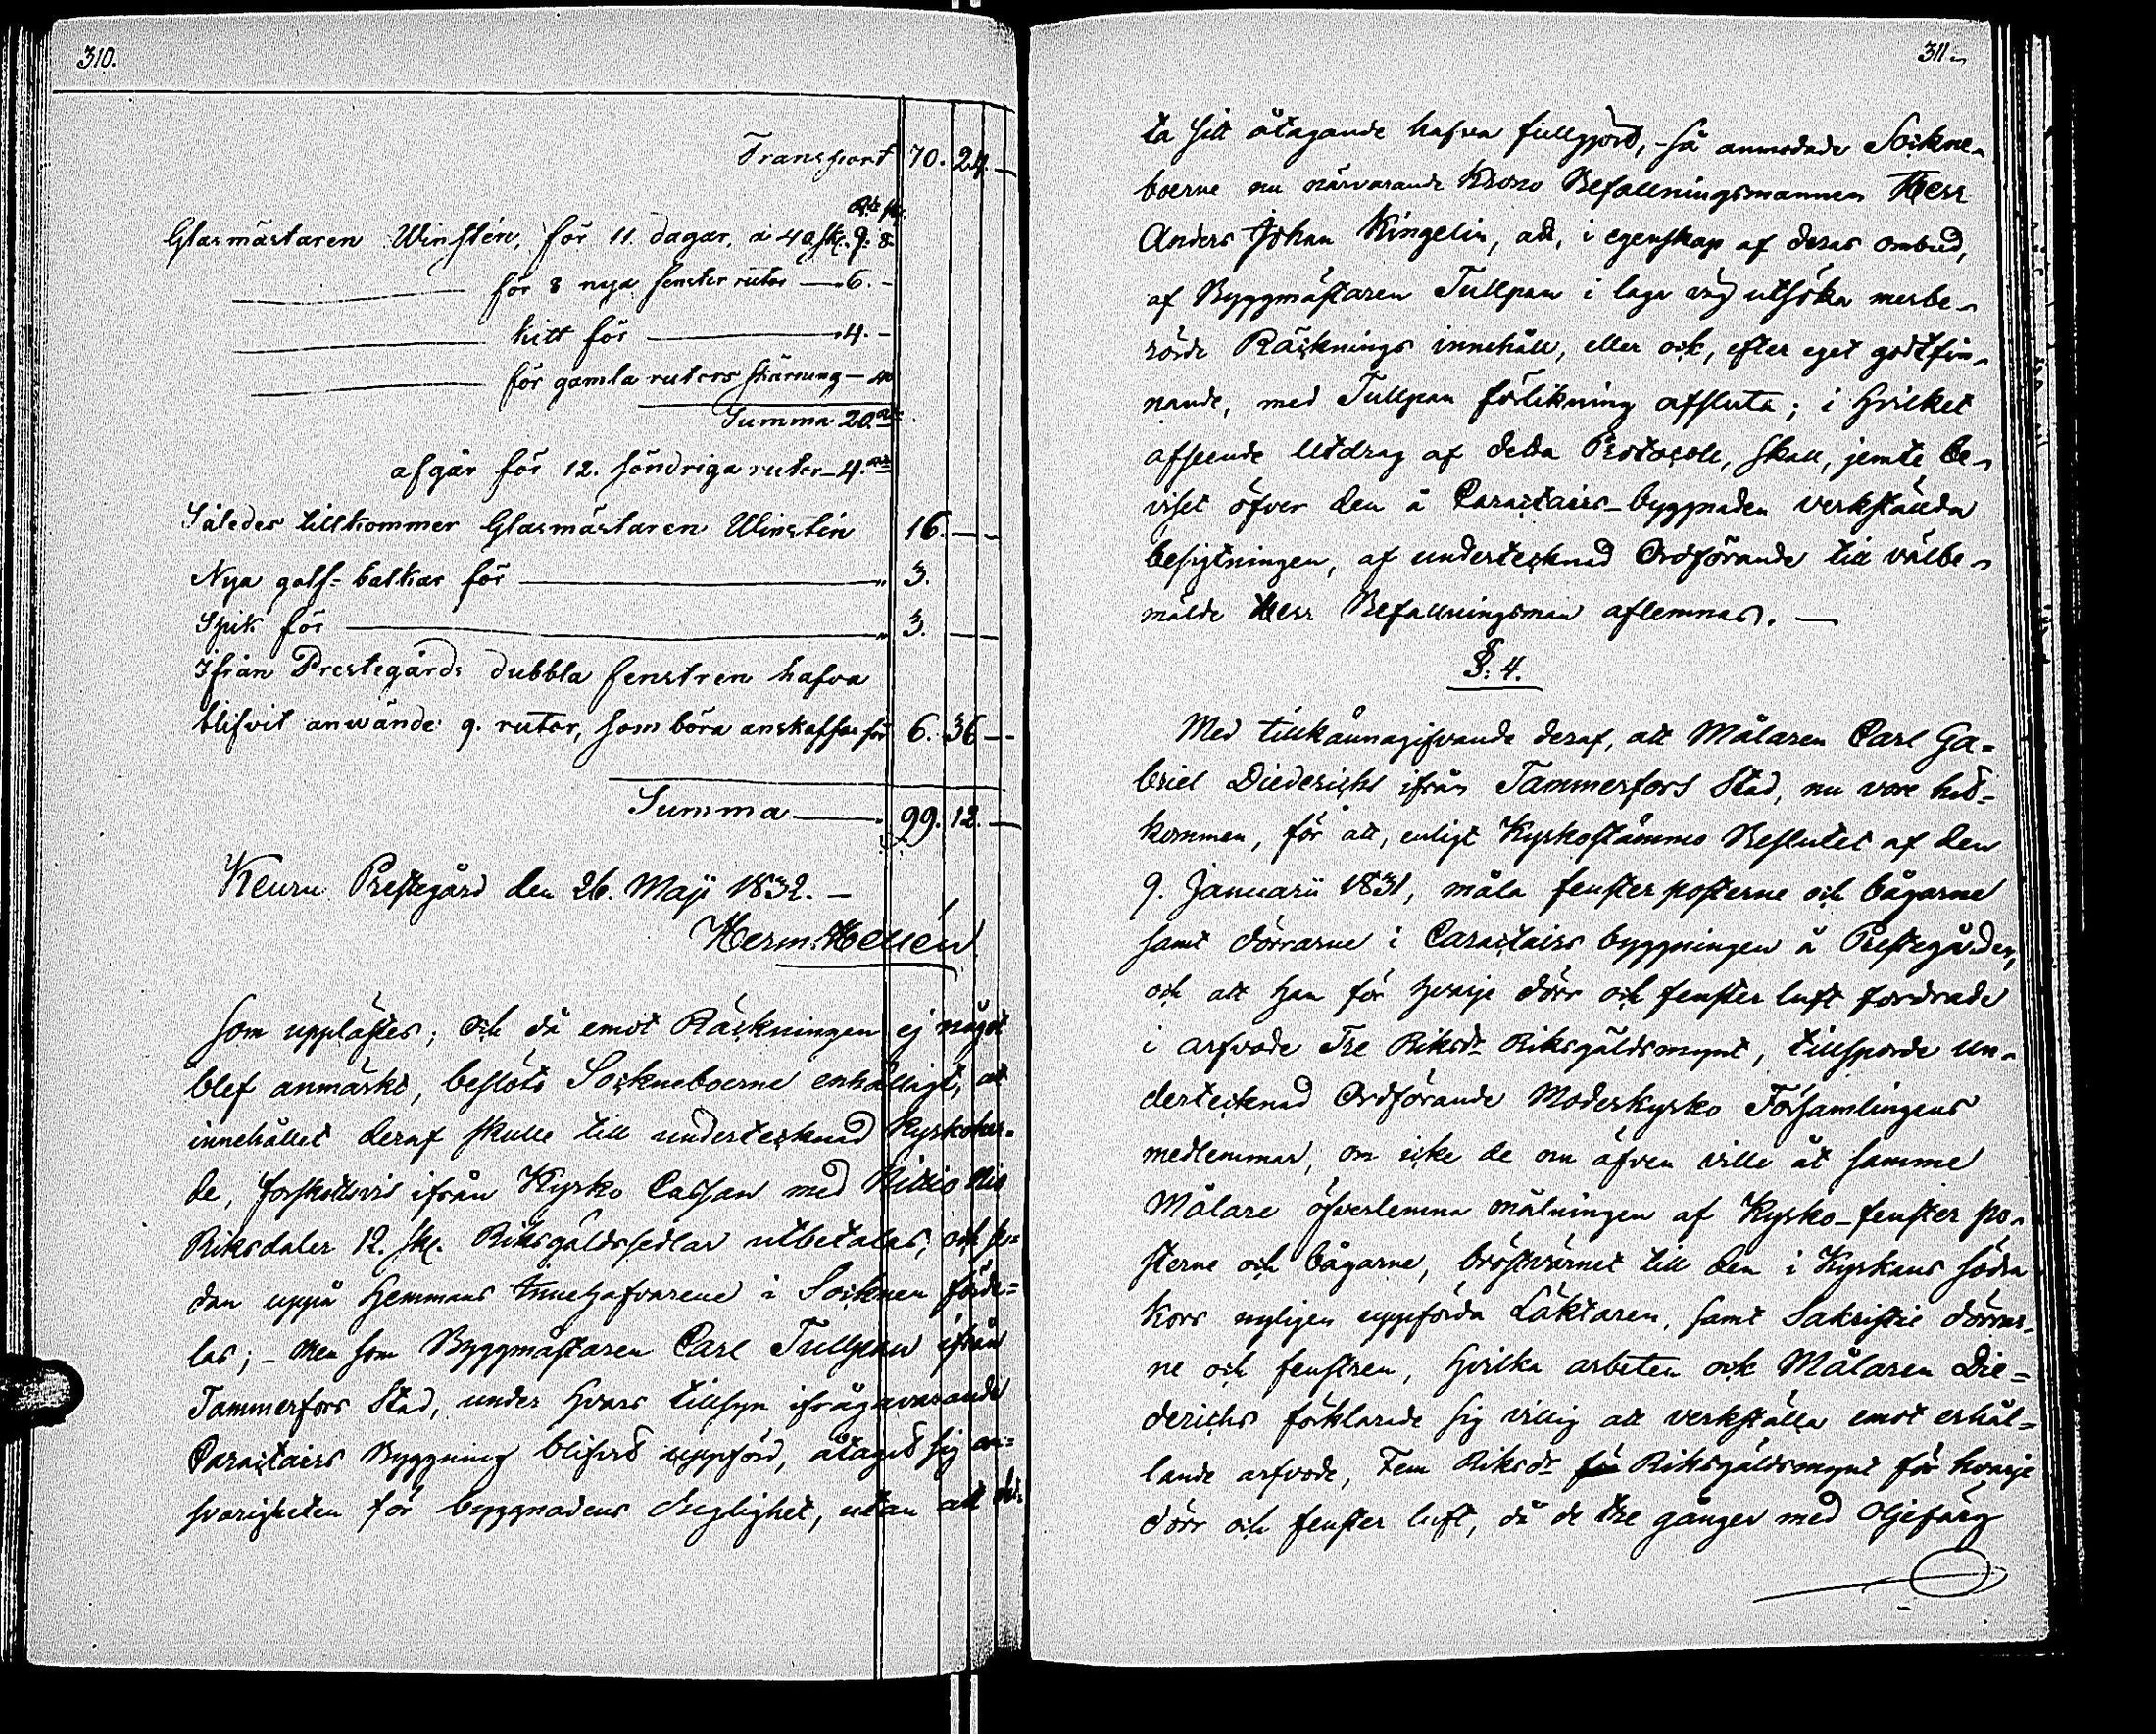 310.
Transport 70. 24. —
Rdr sk.
Glasmästaren Winstén, för 11. dagar, à 40 sk. 9. 8
för 8 nya fenster rutor — 6. -
kitt för — 4. -
för gamla rutors skärning — 40
Summa 20 Rdr
afgår för 12. söndriga rutor — 4. Rdr
Således tillkommer Glasmästaren Winstén 16. — -
Nya golf-balkar för — " 3.
Spik för — " 3. —
Ifrån Prestegårds dubbla fenstren hafva
blifvit anwände 9. rutor, som böra anskaffas för 6. 36 —
Summa — 99. 12. —
Keuru Prestegård den 26. Maji 1832. —
Herm. Hellén
som upplästes; och då emot Räckningen ej något
blef anmärkt, beslöts Sockneboerne enhälligt, att
innehållet deraf skulle till undertecknad Kyrkoher-
de, forskottsvis ifrån Kyrko Cassan med Nittio Nio
Riksdaler 12. sk. Riksgäldssedlar utbetalas, och se-
dan uppå Hemmans Innehafvarene i Socknen förde-
las; – Men som Byggmästaren Carl Tullpan ifrån
Tammerfors Stad, under hvars tillsyn ifrågavarande
Caractairs Byggning blifvit uppförd, åtagit sig an-
svarigheten för byggnadens duglighet, utan att det-
311.
ta sitt åtagande hafva fullgjord, – så anmodade Sockne-
boerne nu närvarande Krono Befallningsmannen Herr
Anders Johan Kingelin, att, i egenskap af deras ombud,
af Byggmästaren Tullpan i laga väg utsöka merbe-
rörde Räcknings innehåll, eller ock, efter eget godtfin-
nande, med Tullpan förlikning afsluta; i hvilket
afseende Utdrag af detta Protocoll, skall, jemte be-
viset öfver den å Caractairs-byggnaden verkstälda
besigtningen, af undertecknad Ordförande till välbe-
mälde Herr Befallningsman aflemnas. —
§. 4.
Med tillkännagifvande deraf, att Målaren Carl Ga-
briel Diederichs ifrån Tammerfors Stad, nu vore hit-
kommen, för att, enligt Kyrkostämmo Beslutet af den
9. Januarii 1831, måla fenster posterne och bågarne
samt dörrarne i Caractairs byggningen å Prestegården,
och att han för hvarje dörr och fenster luft fordrade
i arfvode Tre Riksdr Riksgäldsmynt, tillsporde un-
dertecknad Ordförande Moderkyrko Församlingens
medlemmar, om icke de nu äfven ville åt samme
Målare öfverlemna målningen af Kyrko-fenster po-
sterne och bågarne, bröstvärnet till den i Kyrkans södra
kors nyligen uppförda Läktaren, samt Sakristie dörrar-
ne och fenstren, hvilka arbeten ock Målaren Die-
derichs förklarade sig villig att verkställa emot erhål-
lande arfvode, Fem Riksdr för Riksgäldsmynt för hvarje
dörr och fenster luft, då de tre gånger med Oljefärg